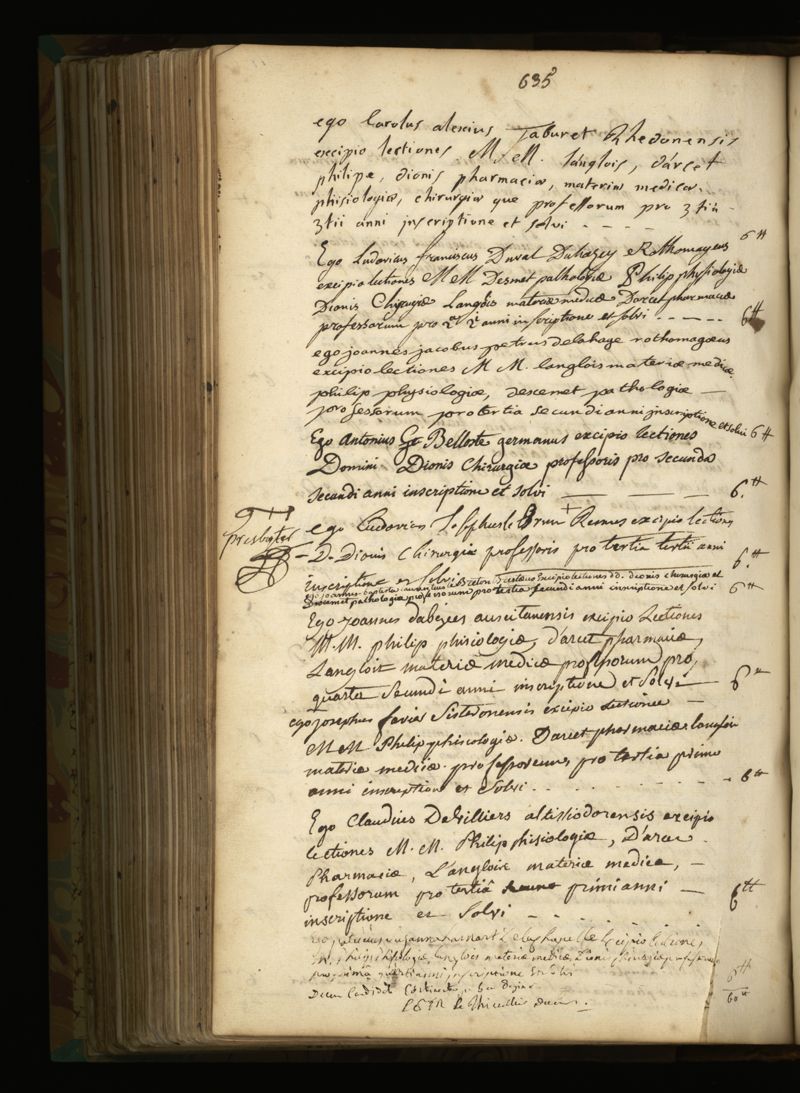 635
ego Carolus alexius Taburet Rhedonensis
excipio lectiones M.M. langlois, darcet
philipe, dionis pharmaciæ, materiæ medicæ,
phisiologiæ, chirurgiæ que professorum pro 3tiâ
3tii anni inscriptione et solvi - - - -
6tt
Ego Ludovicus franciscus Duval Duhazey Rothomagens
excipio lectiones MM Desmet pathologiæ Philip physiologiæ
Dionis Chirurgiæ Langlois materiæ medicæ Darcet pharmaciæ
professorum pro 2ª 2i anni inscriptione et solvi - - - - - 6tt
ego joannes jacobus petrus delahaye rothomagæus
excipio lectiones M M. langlois materiæ medicæ
philip physiologiæ, descemet pathologiæ —
professorum pro tertia secundi anni inscriptione et solvi 6tt
Ego Antonius Bellote germanus excipio lectiones
Domini Dionis Chirurgiæ professoris pro secunda
secundi anni inscriptione et solvi — — — 6.tt
Presbyter
ego Ludovicus Josephus le Brun + Remus excipio lectiones
D. Dionis Chirurgiæ professoris pro tertia tertii anni
inscriptione et solvi 6.tt
ego joannes baptista le Breton excipio lectiones dd. dionis chirurgiæ et
Descemet pathologiæ professorum pro tertia secundi anni inscriptione et solvi 6tt
Ego joannes dabezes auscitanensis excipio Lectiones
M.M. philip phisiologiæ, darcet pharmaciæ,
Langlois materiæ medicæ professorum pro,
quarta secundi anni inscriptione et Solvi — 6tt
ego josephus favier Sistedonensis excipio lectiones —
M M Philip phisiologiæ. Darcet pharmaciæ langlois
materiæ medicæ. professorum pro tertia primi
anni inscriptione et Solvi. . . . . . . . 6tt
Ego Claudius Devilliers altissiodorensis excipio
lectiones M. M. Philip phisiologiæ, D'arcet
Pharmaciæ, L'angloix materiæ medicæ, —
professorum pro tertiâ primi anni —
inscriptione et Solvi - - - - 6tt
excipio lectiones
phisiologiæ, langlois materiæ medicæ, Dionis chirurgiæ professorum
pro prima quarti anni inscriptione et solvi 6tt
60tt
L. P. F. R. le Thieullier decanus.